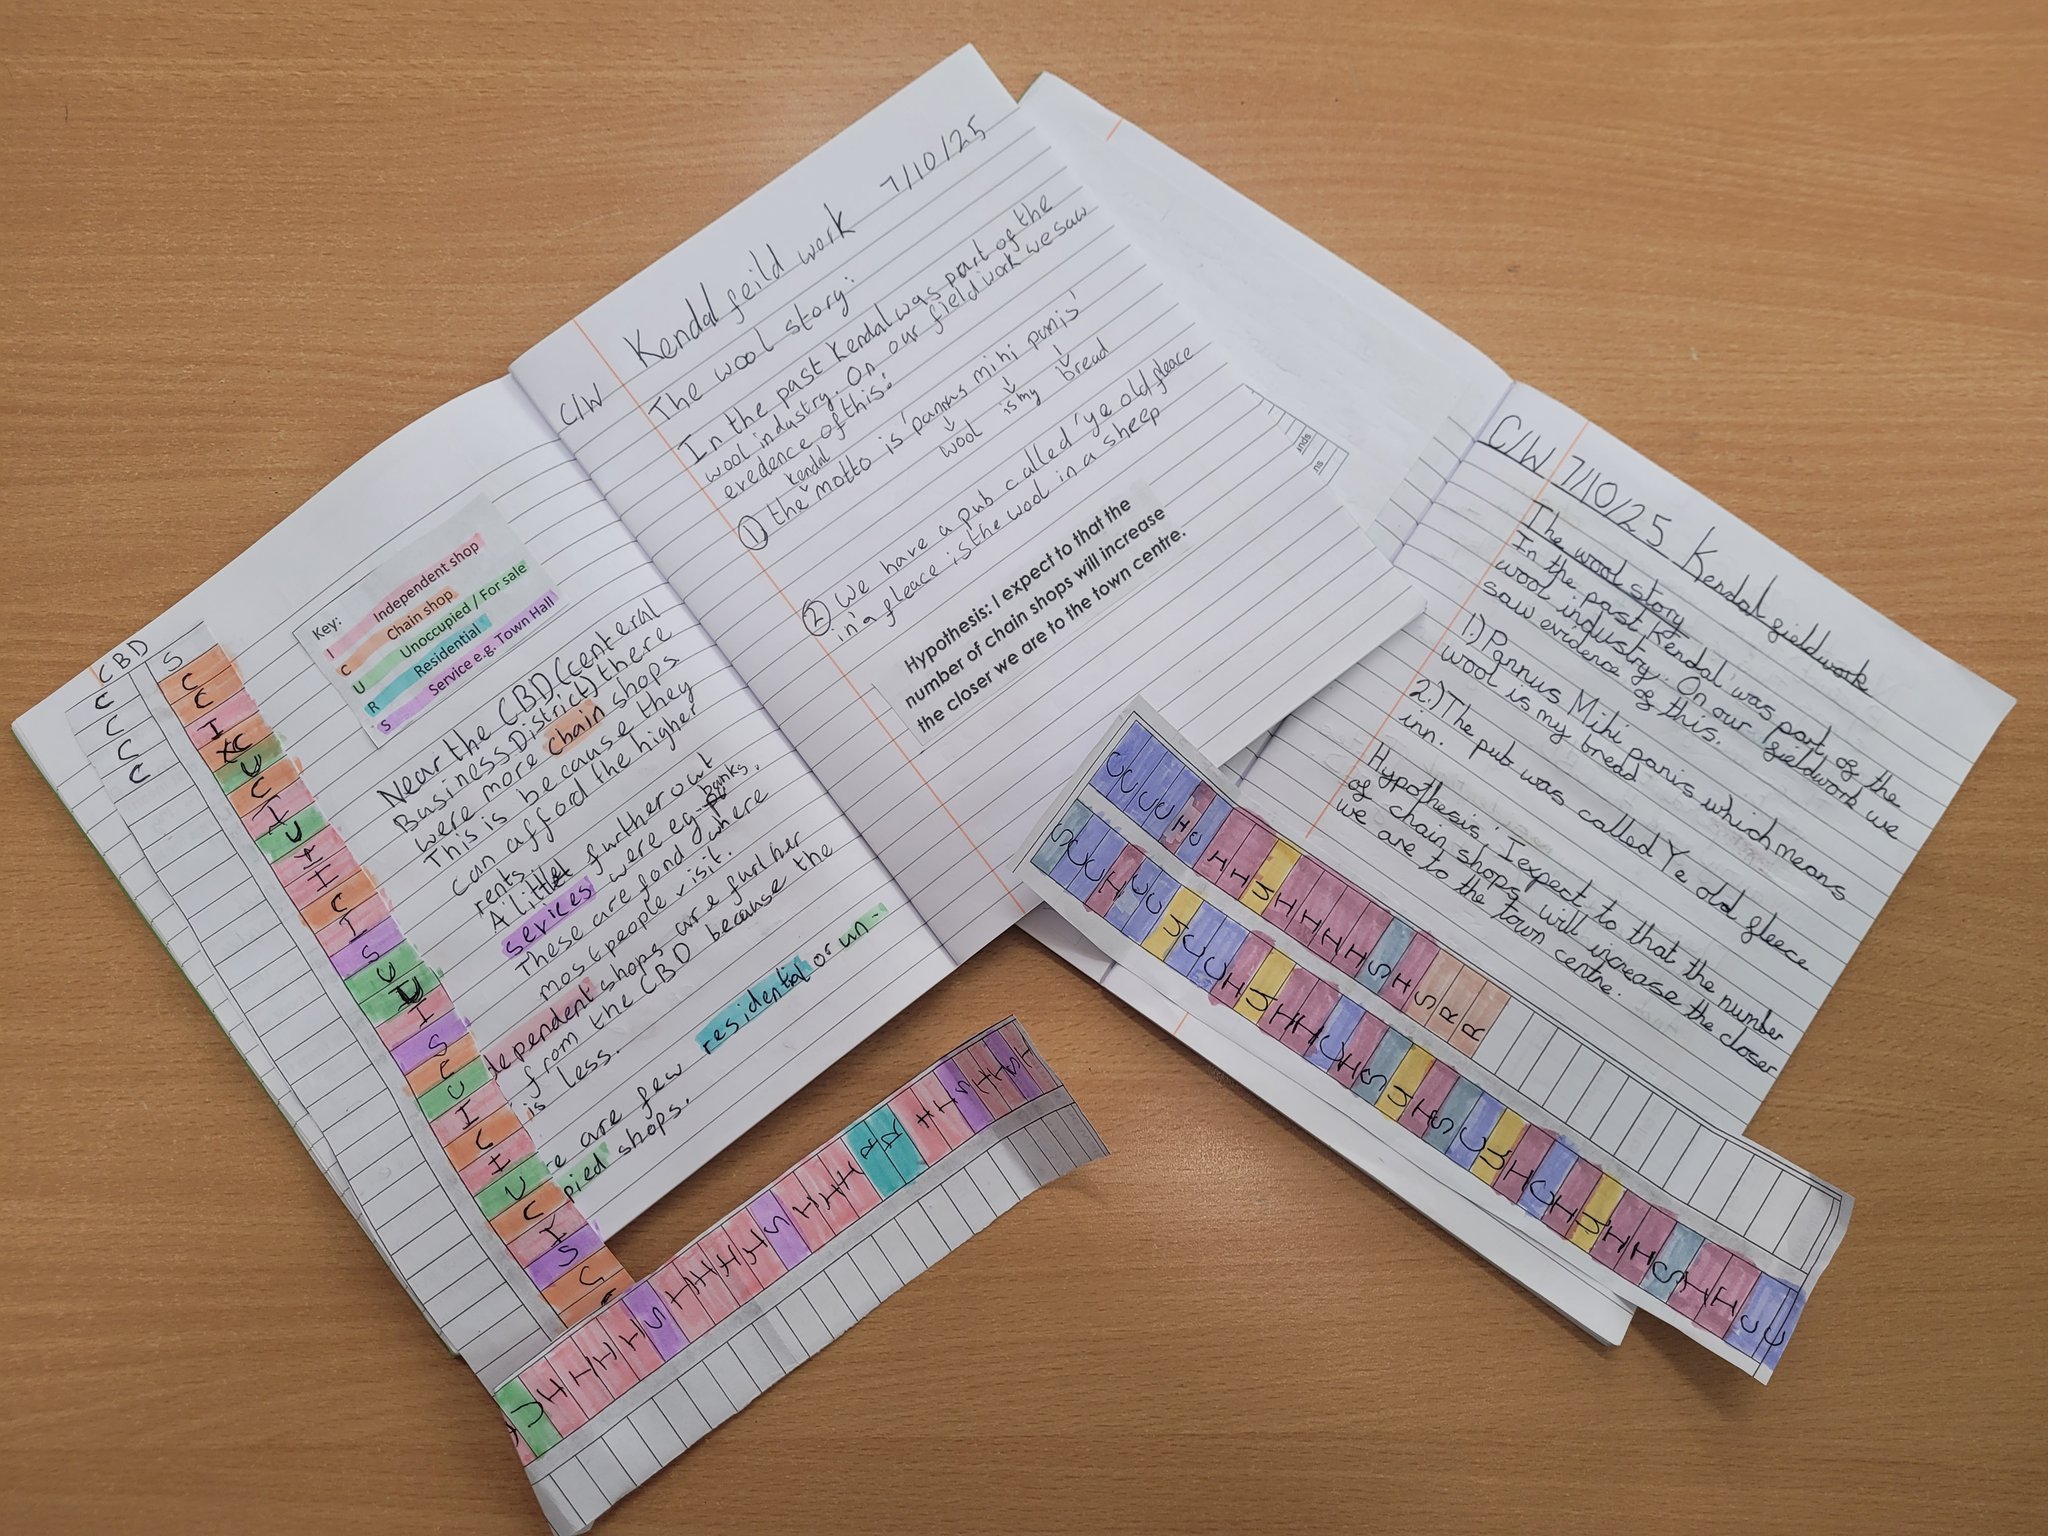 CBD
C
C
C
C
S
C
C
I
XC
U
C
I
U
I
I
C
I
S
U
U
I
S
C
U
I
C
I
U
C
I
S
C
Key:
I Independent shop
C Chain shop
U Unoccupied / For sale
R Residential
S Service e.g. Town Hall
Near the CBD (centeral
Business District) there
were more chain shops
This is because they
can afford the higher
rents.
A little further out
services were eg banks.
These are fond where
most people visit.
dependent shops are further
from the CBD because the
is less.
are few residential or un-
pied shops.
U
I
I
I
I
S
I
I
I
I
S
I
I
I
R
R
I
I
S
I
I
S
I
C/W Kendal feild work 7/10/25
The wool story:
In the past Kendal was part of the
wool industry. On our field work we saw
evedence of this:
kendal
① the motto is 'pannus mihi panis'
wool is my bread
② we have a pub called 'ye old fleace
in' a fleace is the wool in a sheep
Hypothesis: I expect to that the
number of chain shops will increase
the closer we are to the town centre.
C/W 7/10/25 Kendal fieldwork
The wool story
In the past Kendal was part of the
wool industry. On our fieldwork we
saw evidence of this.
1) Pannus Mihi panis which means
wool is my bread
2.) The pub was called Ye old fleece
inn.
Hypothesis: I expect to that the number
of chain shops will increase the closer
we are to the town centre.
C
C
C
C
I
C
I
I
U
I
I
I
I
S
I
S
R
R
S
C
C
I
C
C
U
C
C
I
U
I
I
C
I
S
U
I
S
C
U
I
C
I
U
I
I
S
I
I
C
C